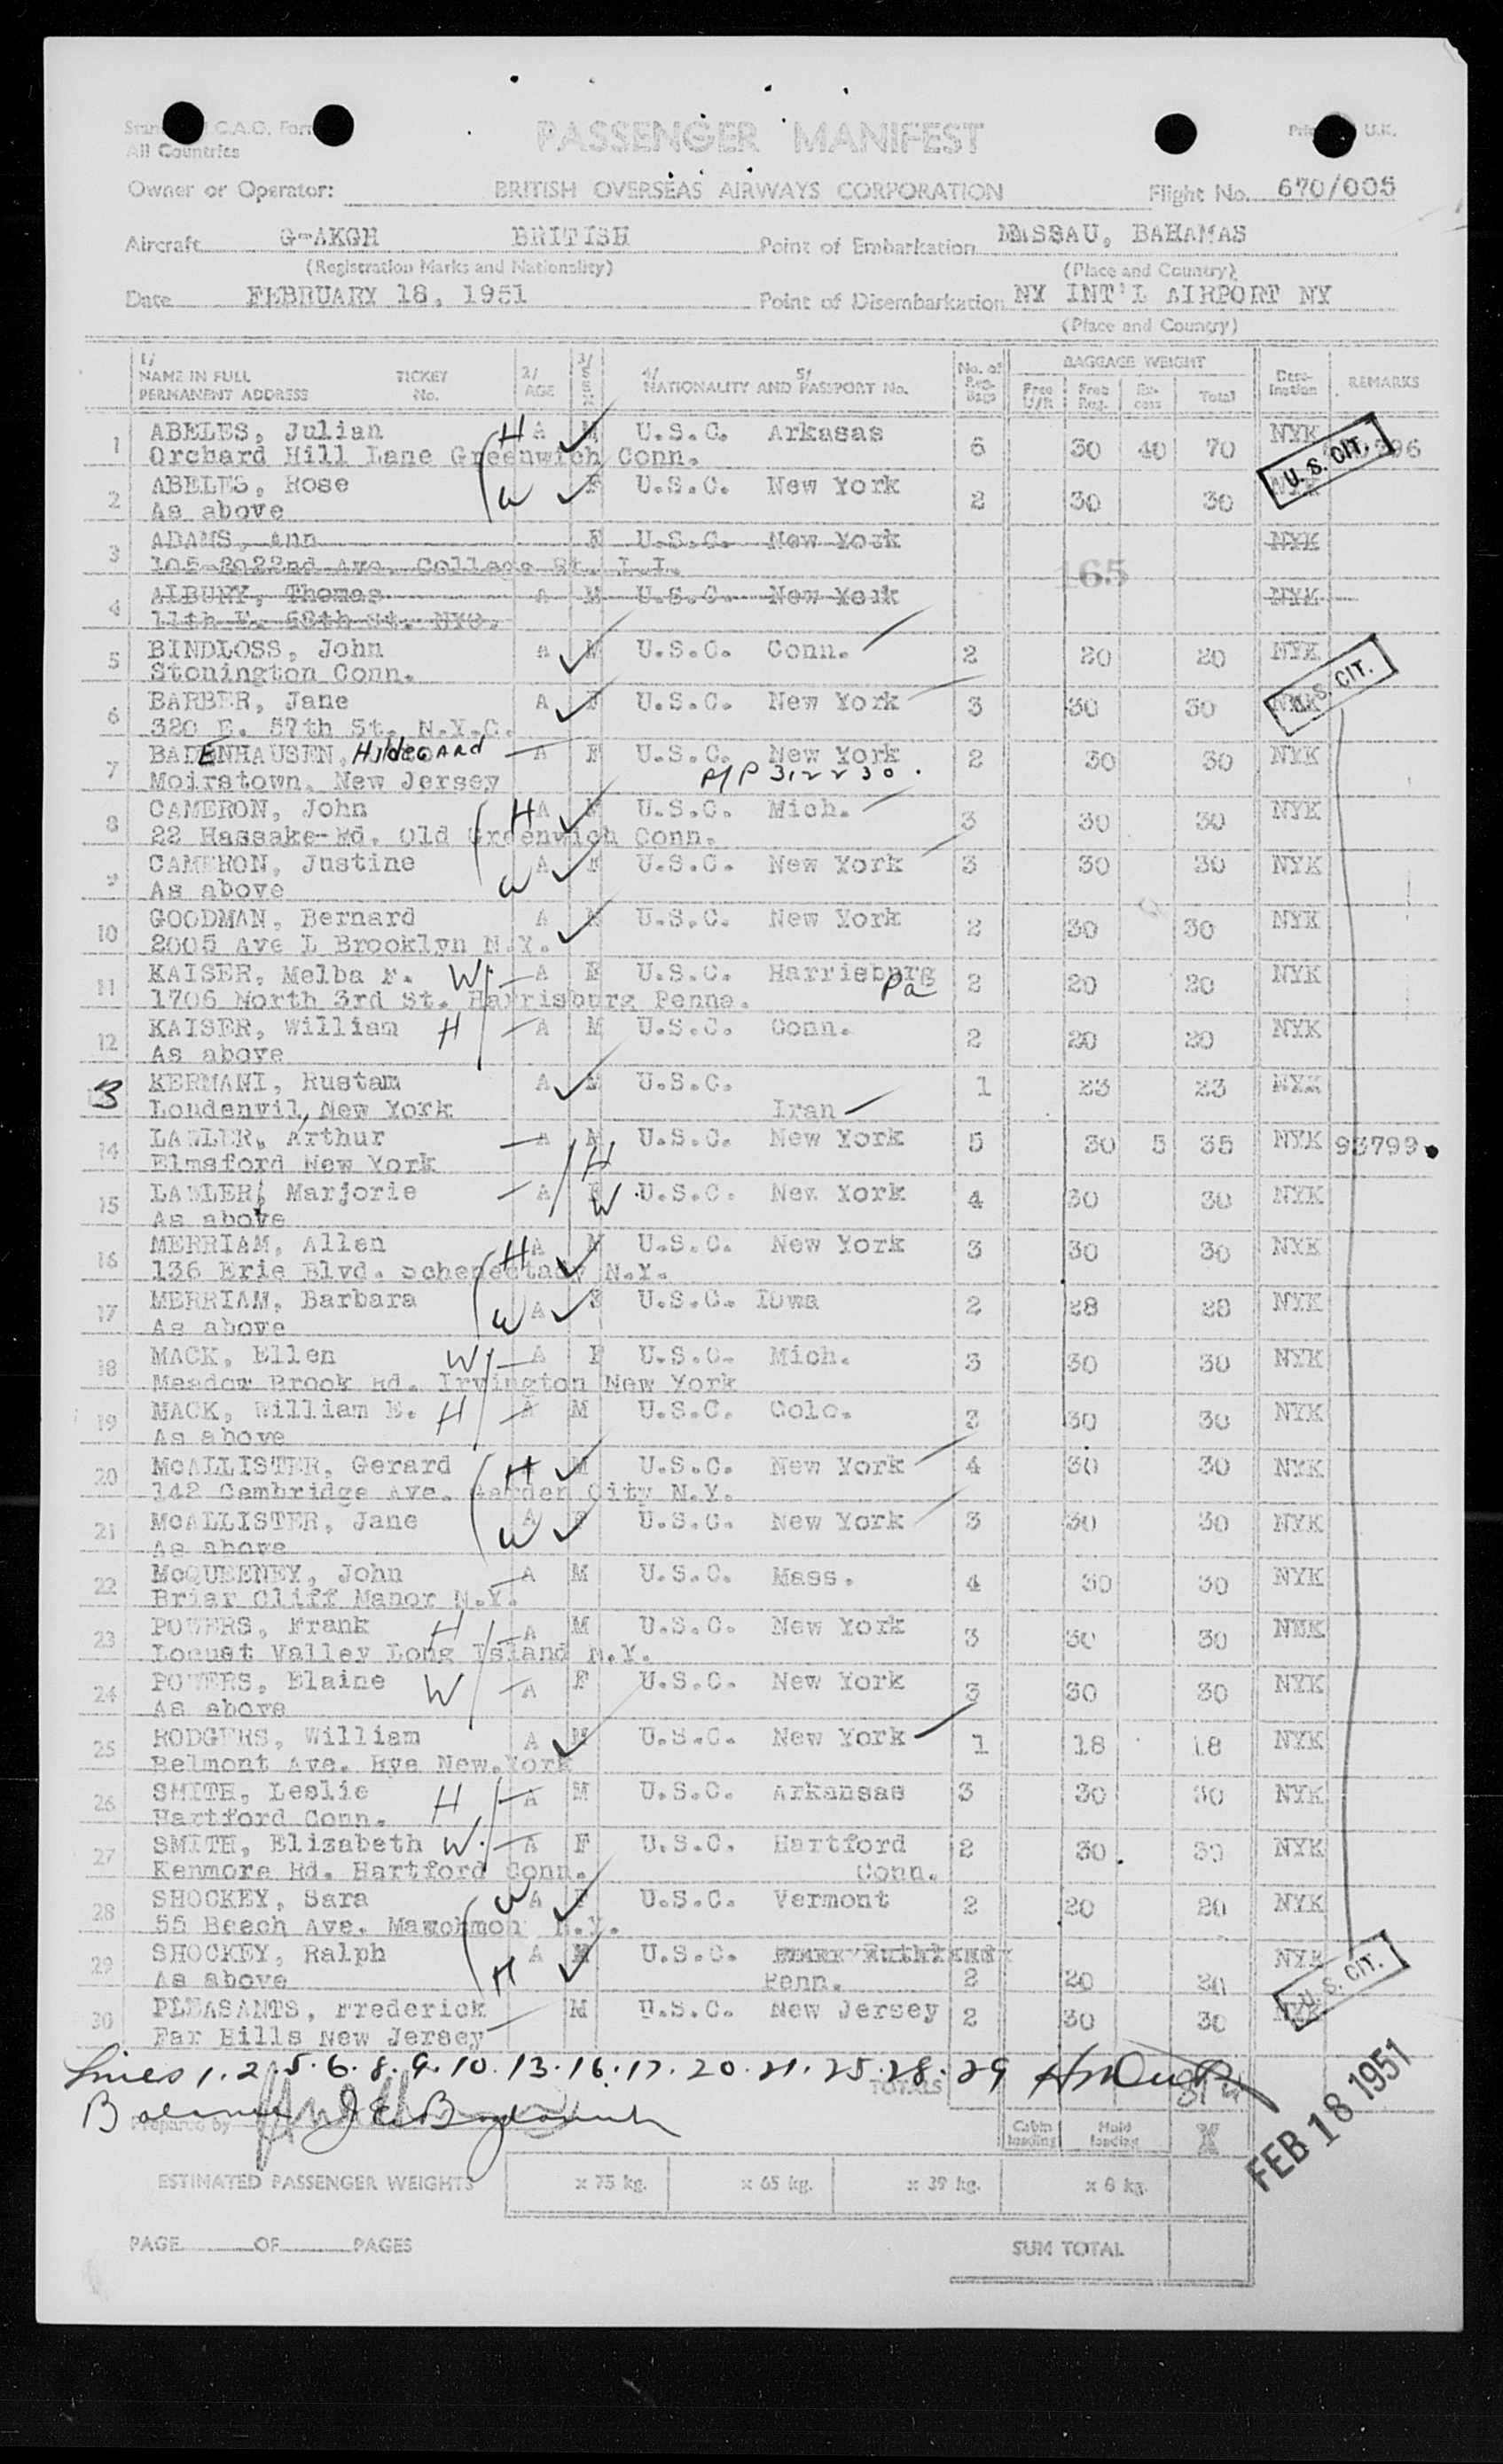 All Countries
PASSENGER MANIFEST
U.K.
Owner or Operator: BRITISH OVERSEAS AIRWAYS CORPORATION Flight No. 670/005
Aircraft G-AKGH BRITISH Point of Embarkation NASSAU, BAHAMAS
(Registration Marks and Nationality) (Place and Country)
Date FEBRUARY 18, 1951 Point of Disembarkation NY INT'L AIRPORT NY
(Place and Country)
1/ NAME IN FULL PERMANENT ADDRESS TICKET No. 2/ AGE 3/ SEX 4/ NATIONALITY AND 5/ PASSPORT No. No. of Reg. Bags BAGGAGE WEIGHT Free U/R Free Reg. Ex-cess Total Dest-ination REMARKS
1 ABELES, Julian H A M U.S.C. Arkasas 6 30 40 70 NYK
Orchard Hill Lane Greenwich Conn.
U.S. CIT.
2 ABELES, Rose W F U.S.C. New York 2 30 30 NYK
As above
3 ADAMS, Ann F U.S.C. New York NYK
165
4 ALBURY, Thomas A M U.S.C. New York NYK
5 BINDLOSS, John A M U.S.C. Conn. 2 20 20 NYK
Stonington Conn.
U.S. CIT.
6 BARBER, Jane A F U.S.C. New York 3 30 30 NYK
320 E. 57th St. N.Y.C.
7 BADENHAUSEN, HildegARd A F U.S.C. New York 2 30 30 NYK
Moirstown, New Jersey P/P 312230.
8 CAMERON, John H A M U.S.C. Mich. 3 30 30 NYK
22 Hassake-Rd. Old Greenwich Conn.
9 CAMERON, Justine W A F U.S.C. New York 3 30 30 NYK
As above
10 GOODMAN, Bernard A M U.S.C. New York 2 30 30 NYK
2005 Ave L Brooklyn N.Y.
11 KAISER, Melba F. W A F U.S.C. Harrisburg Pa 2 20 20 NYK
1706 North 3rd St. Harrisburg Penna.
12 KAISER, William H A M U.S.C. Conn. 2 20 20 NYK
As above
13 KERMANI, Rustam A M U.S.C. 1 23 23 NYK
Londenvil, New York Iran
14 LAWLER, Arthur A M H U.S.C. New York 5 30 5 35 NYK 93799
Elmsford New York
15 LAWLER, Marjorie A F W U.S.C. New York 4 30 30 NYK
As above
16 MERRIAM, Allen H A M U.S.C. New York 3 30 30 NYK
136 Erie Blvd. Schenectady N.Y.
17 MERRIAM, Barbara W A F U.S.C. Iowa 2 28 28 NYK
As above
18 MACK, Ellen W A F U.S.C. Mich. 3 30 30 NYK
Meadow Brook Rd. Irvington New York
19 MACK, William E. H A M U.S.C. Colo. 3 30 30 NYK
As above
20 McALLISTER, Gerard H M U.S.C. New York 4 30 30 NYK
142 Cambridge Ave. Garden City N.Y.
21 McALLISTER, Jane W A F U.S.C. New York 3 30 30 NYK
As above
22 McQUEENEY, John A M U.S.C. Mass. 4 30 30 NYK
Briar Cliff Manor N.Y.
23 POWERS, Frank H A M U.S.C. New York 3 30 30 NYK
Locust Valley Long Island N.Y.
24 POWERS, Elaine W A F U.S.C. New York 3 30 30 NYK
As above
25 RODGERS, William A M U.S.C. New York 1 18 18 NYK
Belmont Ave. Rye New.York
26 SMITH, Leslie H A M U.S.C. Arkansas 3 30 30 NYK
Hartford Conn.
27 SMITH, Elizabeth W A F U.S.C. Hartford 2 30 30 NYK
Kenmore Rd. Hartford Conn. Conn.
28 SHOCKEY, Sara W A F U.S.C. Vermont 2 20 20 NYK
55 Beach Ave. N.Y.
29 SHOCKEY, Ralph H A M U.S.C. NYK
As above Penn. 2 20 20
U.S. CIT.
30 PLEASANTS, Frederick M U.S.C. New Jersey 2 30 30 NYK
Far Hills New Jersey
Lines 1.2.5.6.8.9.10.13.16.17.20.21.25.28.29
TOTALS
Balance
Prepared by
FEB 18 1951
Cabin loading Hold loading
ESTIMATED PASSENGER WEIGHTS x 75 kg. x 65 kg. x 39 kg. x 8 kg.
PAGE OF PAGES SUM TOTAL